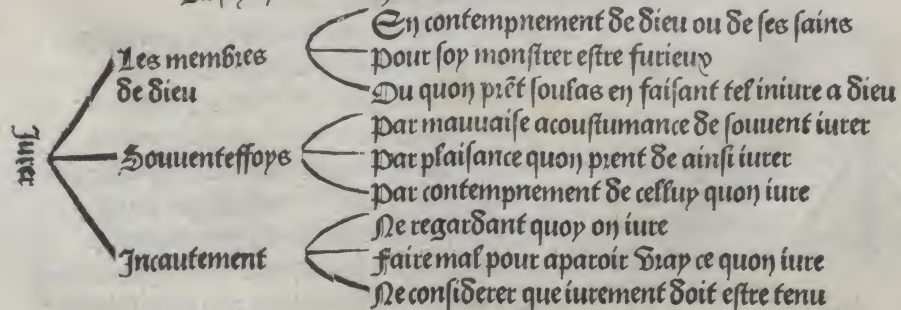 Jurer
Les membres
de dieu
En contempnement de dieu ou de ses sains
Pour soy monstrer estre furieux
Ou quon prẽt soulas en faisant tel iniure a dieu
Souuenteffoys
Par mauuaise acoustumance de souuent iurer
Par plaisance quon prent de ainsi iurer
Par contempnement de celluy quon iure
Incautement
Ne regardant quoy on iure
Faire mal pour aparoir vray ce quon iure
Ne considerer que iurement doit estre tenu